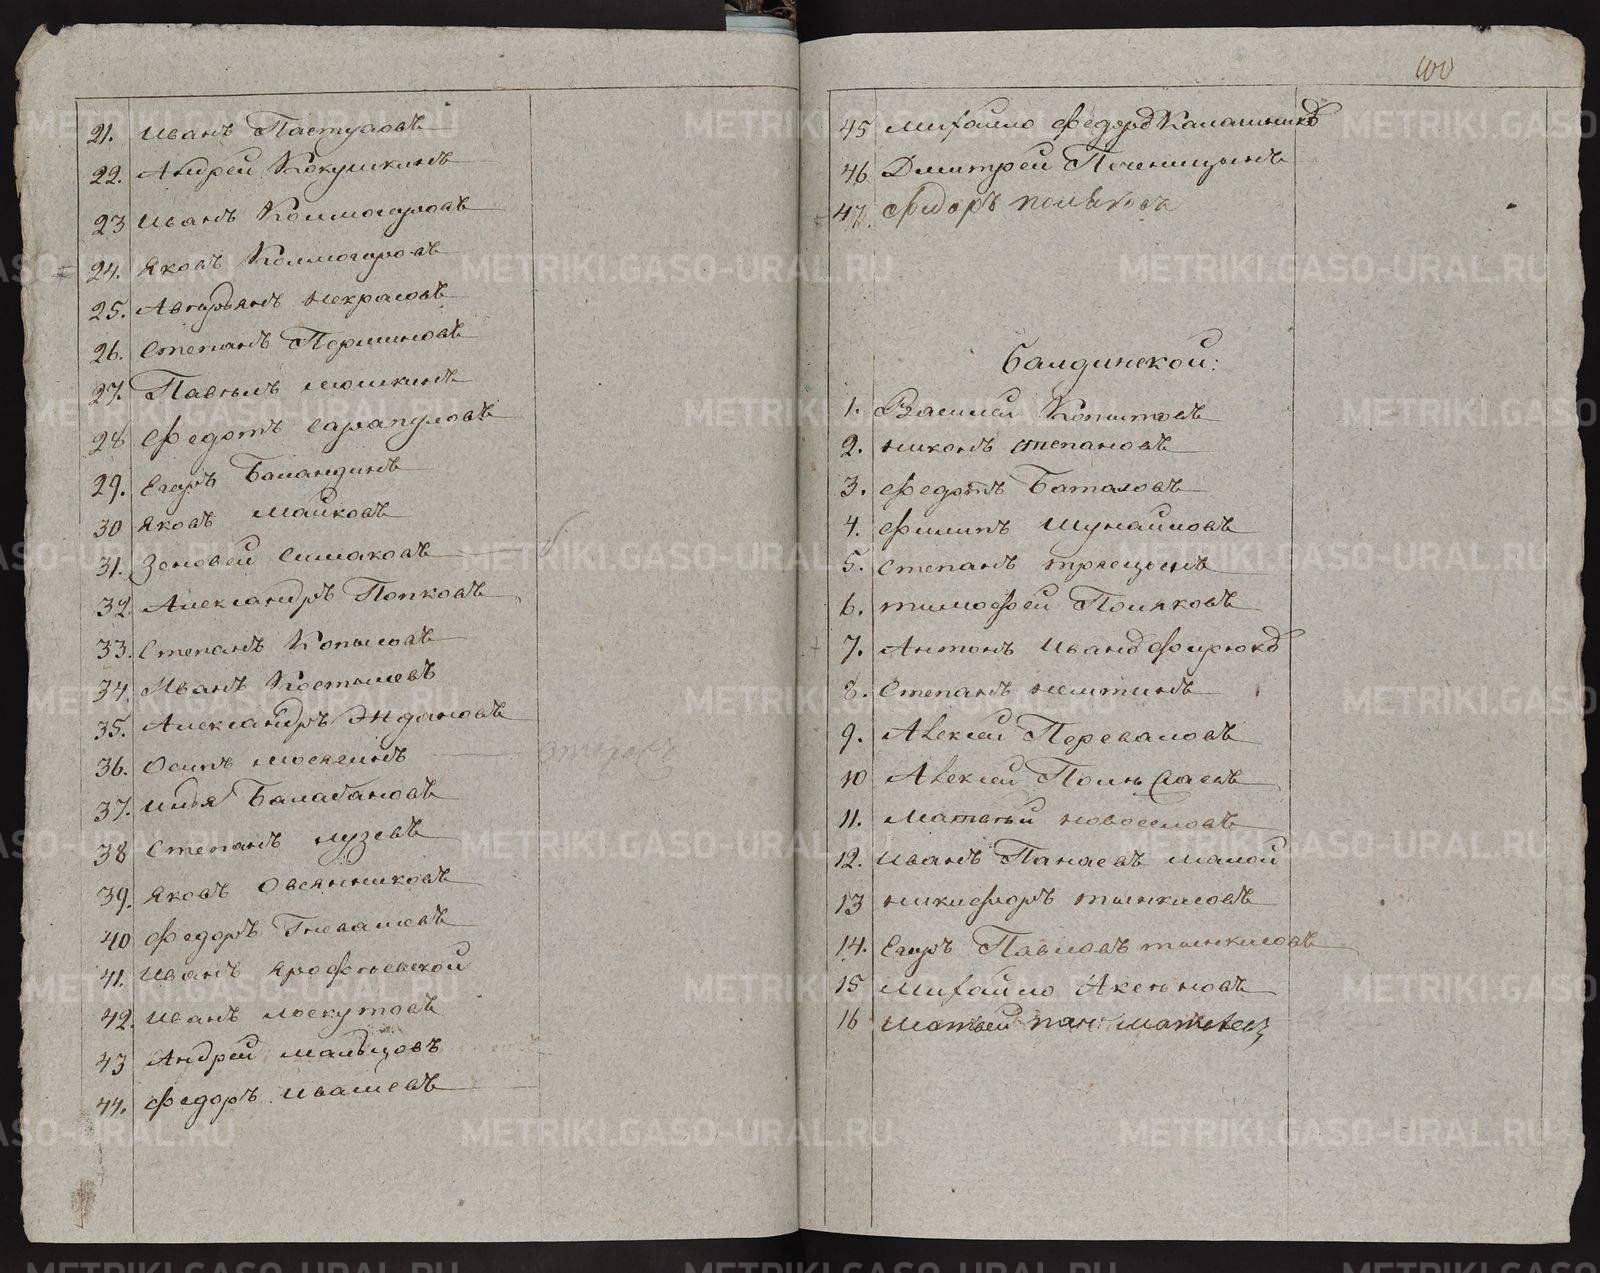 21. Иванъ Пастуховъ
22. Андрей Кокушкинъ
23 Иванъ Колмогоровъ
24. Яковъ Колмогоровъ
25. Аверьянъ Некрасовъ
26. Степанъ Першиновъ
27. Павелъ Мошкинъ
28 Федотъ Сарапуловъ
29. Егоръ Баландинъ
30 Яковъ Майковъ
31. Зеновей Симаковъ
32. Александръ Попковъ
33. Степанъ Копыловъ
34. Иванъ Костылевъ
35. Александръ Ждановъ
36. Осипъ
37. Илья Балабановъ
38 Степанъ Лузевъ
39. Яковъ Овсянниковъ
40 Федоръ Гневашевъ
41. Иванъ Ярофеевской
42. Иванъ Лоскутовъ
43 Андрей Мальцовъ
44. Федоръ Ивашевъ
100
45 Михайло Федоровъ Калашниковъ
46 Дмитрей Печеницынъ
47. Фидоръ Поляковъ
Балдинской:
1. Василей Копытовъ
2. Никонъ Степановъ
3. Федотъ Баталовъ
4. Филипъ Шунайловъ
5. Степанъ
6. Тимофей Поляковъ
7. Антонъ Ивановъ
8. Степанъ
9. Алексей Переваловъ
10 Алексей
11. Матвей Новоселовъ
12. Иванъ Панаевъ малой
13 Никифоръ Тынкиловъ
14. Егоръ Павловъ Тынкиловъ
15 Михайло Аксеновъ
16 Матвей
METRIKI.GASO-URAL.RU